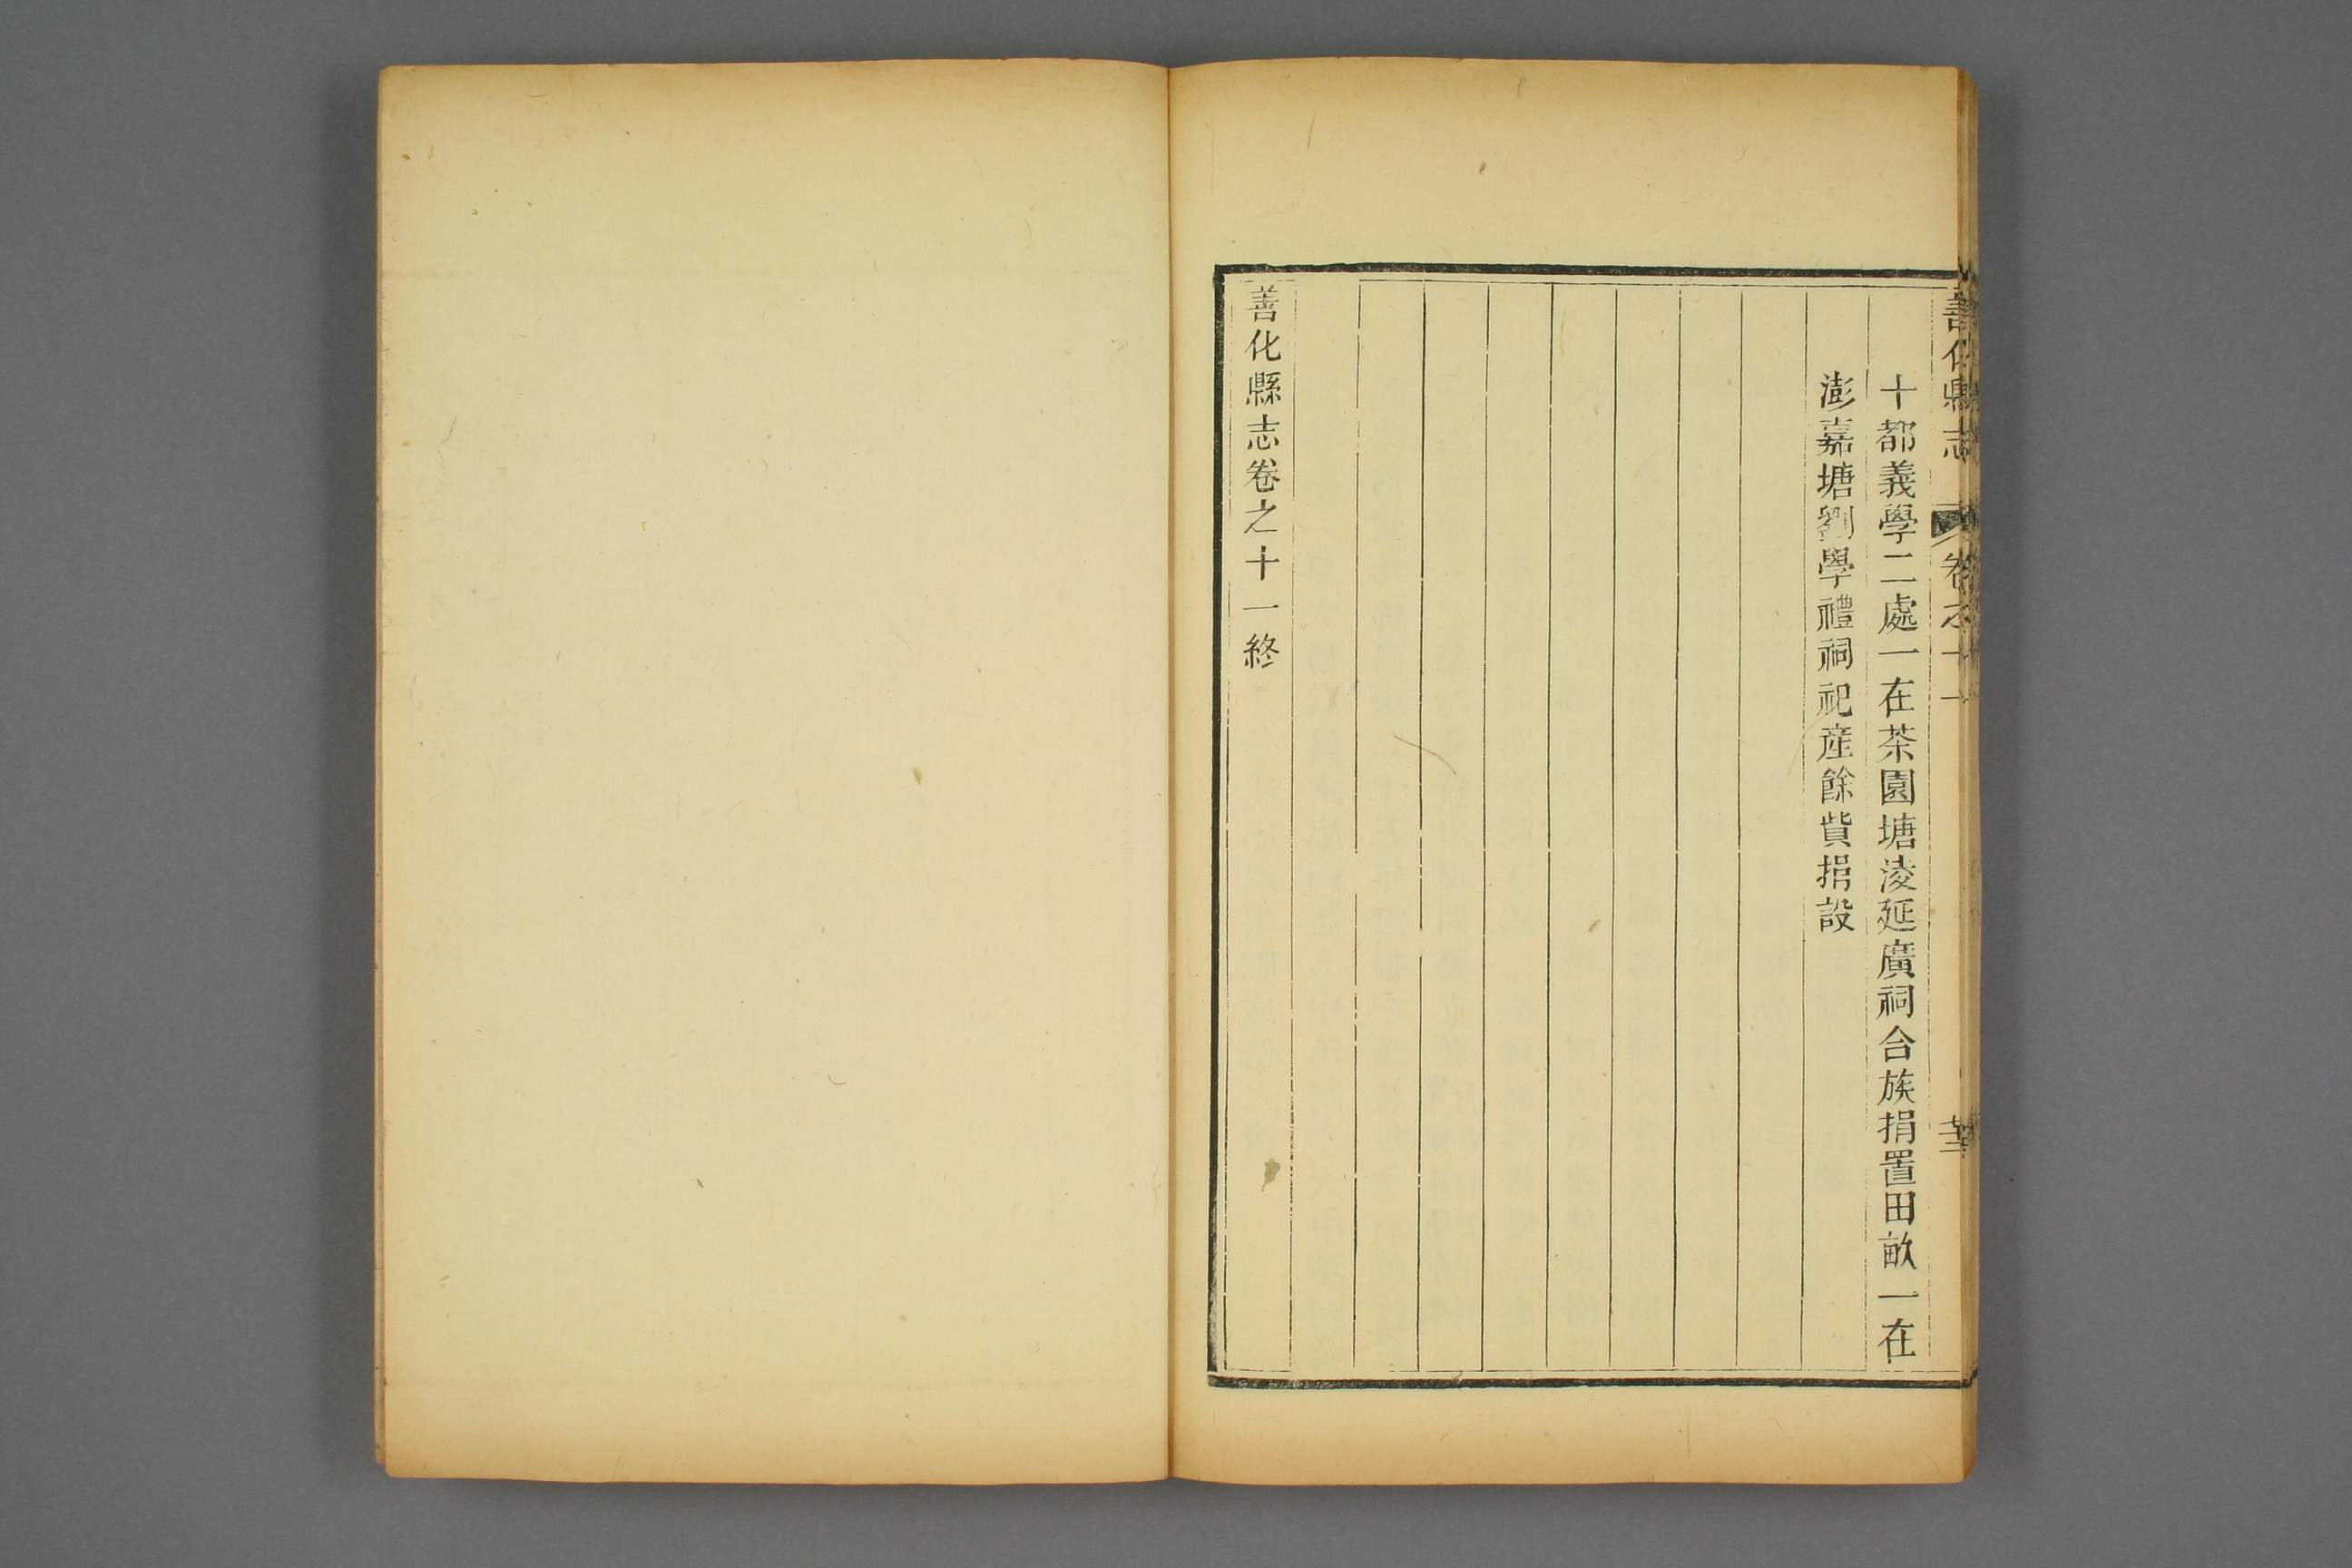 善化縣志 卷之十一
十都義學二處一在茶園塘淩延廣祠合族捐置田畝一在
澎嘉塘劉學禮祠祀產餘貲捐設
善化縣志卷之十一終